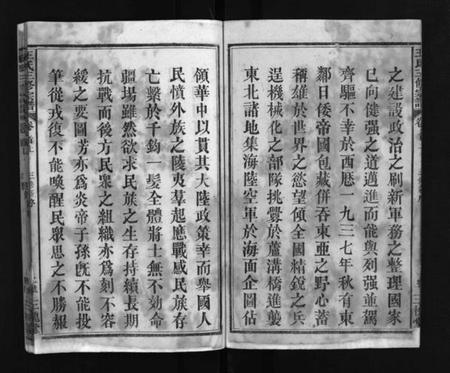 之建設政治之刷新軍務之整理國家
已向健强之道邁進而能與列强並駕
齊驅不幸於西厯一九三七年秋有東
鄰日倭帝國包藏併吞東亜之野心蓄
稱雄於世界之慾望傾全國精銳之兵
逞機械化之部隊挑釁於蘆溝橋進襲
東北諸地集海陸空軍於海面企圖佔
領華中以貫其大陸政策幸而舉國人
民憤外族之陵夷羣起應戰感民族存
亡繫於千鈞一髮全體將士無不効命
疆場雖然欲求民族之生存持續長期
抗戰而後方民衆之組織亦爲刻不容
緩之要圖芳亦爲炎帝子孫旣不能投
筆從戎復不能喚醒民眾思之不勝報